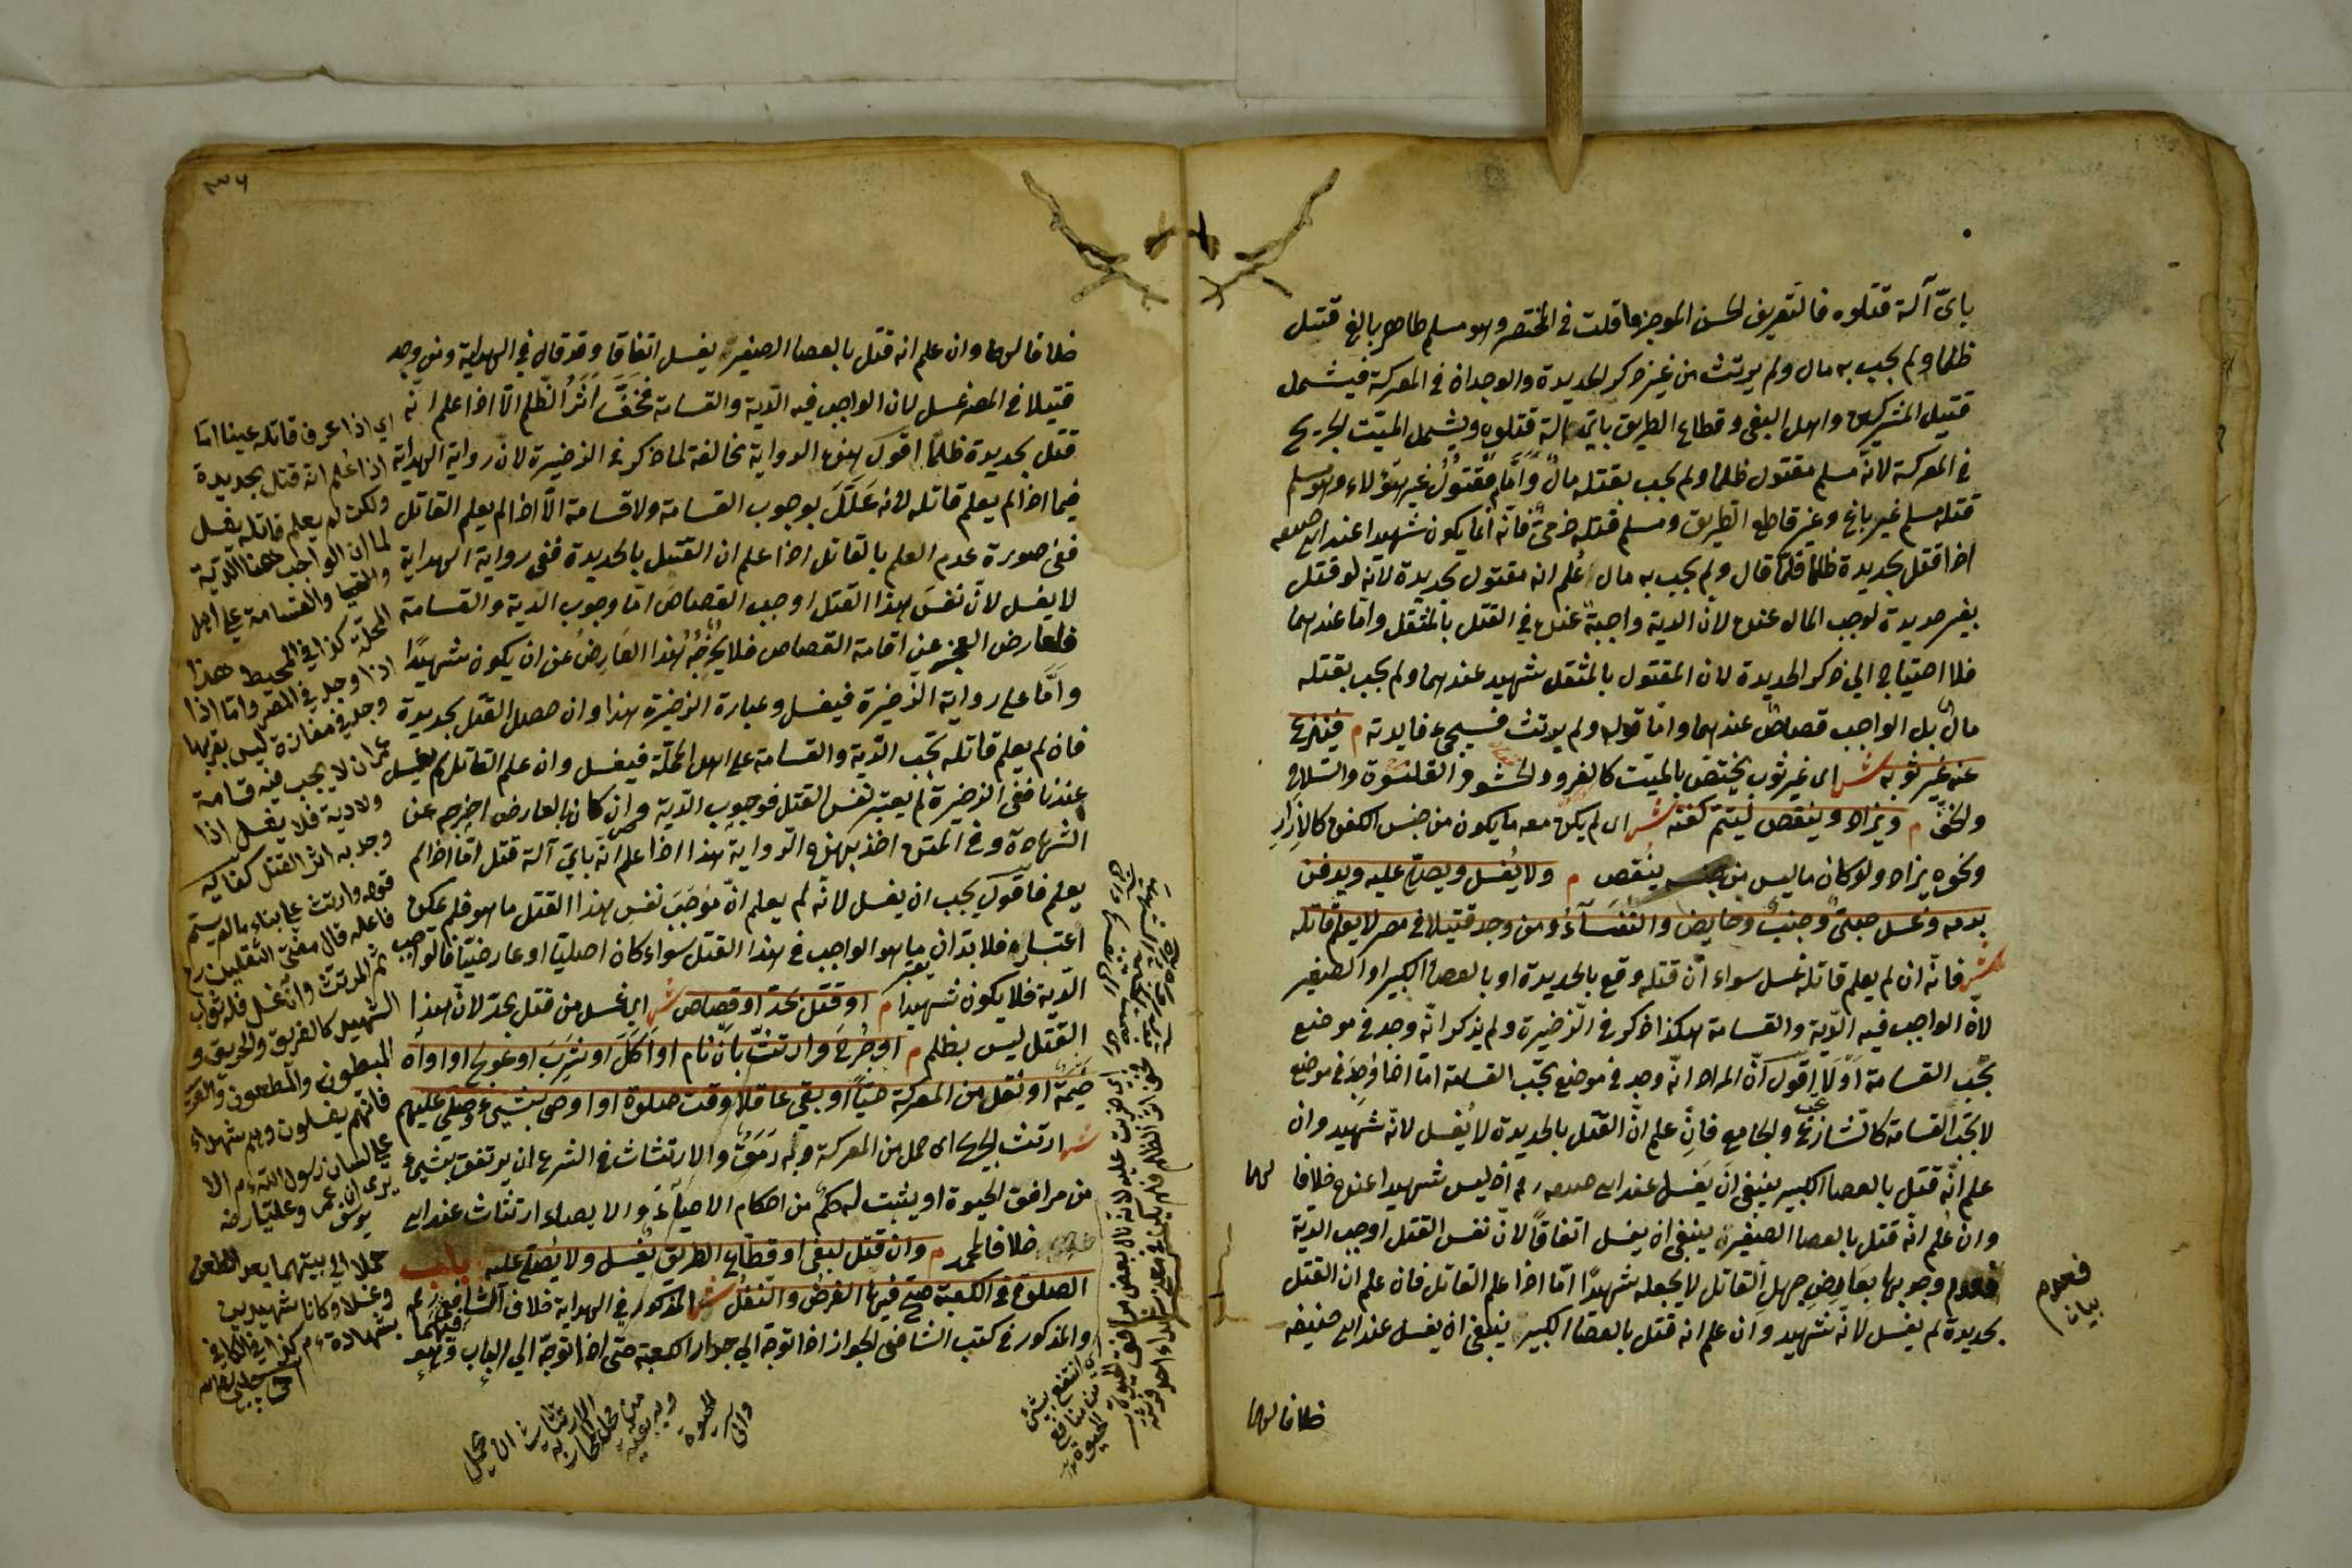 بايّ آلة قتلوه فالتعريف الحسن الموجز ما قلت في المختصر وهو مسلم طاهر بالغ قتل
ظلما ولم يجب به مال ولم يرتث من غير ذكر الحديدة والوجدان في المعركة فيشمل
قتيل المشركين واهل البغى وقطاع الطريق باىّ آلة قتلوه ويشمل الميّت الجريح
في المعركة لانّه مسلم مقتول ظلما ولم يجب بقتله مالٌ وامّا مقتول غير هؤلاء وهو مسلم
قتله مسلم غير باغ وغير قاطع الطريق ومسلم قتله ذمىّ فانّه انما يكون شهيدا عند ابى حنيفة
اذا قتل بحديدة ظلما فلمّا قال ولم يجب به مال عُلم انه مقتول بحديدة لانّه لو قتل
بغير حديدة لوجب المال عنده لان الدية واجبة عنده في القتل بالمثقل وامّا عندهما
فلا احتياج الى ذكر الحديدة لان المقتول بالمثقل شهيد عندهما ولم يجب بقتله
مالٌ بل الواجب قصاص عندهما وامّا قوله ولم يرتث فسيجىء فايدته م فينزع
عنه غير ثوبه ش اى غير ثوب يختصّ بالميّت كالفرو والحشو والقلنسوة والسلاح
والخفّ م ويزاد وينقص ليتمّ كفنه ش اى لم يكن معه ما يكون من جنس الكفن كالازار
ونحوه يزاد ولو كان ما ليس من جنسه يُنقص م ولا يُغسل ويصلّى عليه ويدفن
بدمه وغسل صبىّ وجنب وحايض والنفساءُ ومن وجد قتيلا في مصر لا يعلم قاتله
ش فانّه ان لم يعلم قاتله غسل سواء انّ قتله وقع بالحديدة او بالعصا الكبير او الصغير
لانّ الواجب فيه الدّية والقسامة هكذا ذكر في الذّخيرة ولم يذكر انّه وجد في موضع
يجب القسامة اوْ لَا اقول انّ المراد انّه وجد في موضع يجب القسامة امّا اذا وُجِدَ في موضع
لا تجب القسامة كالشارع والجامع فانِ علم انّ القتل بالحديدة لا يُغسل لانّه شهيد وان
علم انّه قتل بالعصا الكبير ينبغى انْ يغسل عند ابى حنيفة رح اذ ليس شهيدا عنده خلافا لهما
وان عُلم انّه قتل بالعصا الصغيرة ينبغى ان يغسل اتفاقًا لانّ نفس القتل اوجب الدية
فعدم وجوبها بعَارِضِ جهل القاتل لا يجعله شهيدًا امّا اذا علم القاتل فان علم ان القتل
بحديدة لم يغسل لانّه شهيد وان علم انه قتل بالعصا الكبير ينبغى ان يغسل عند ابى حنيفه
فعدم
بيان
خلافا لهما
٣٦
خلافا لهما وان علم انه قتل بالعصا الصغير يغسل اتفاقا وقد قال في الهداية ومن وجد
قتيلا في المصر غسل لان الواجب فيه الدّية والقسامة فخفَّ اثرُ الظّلم الّا اذا علم انّه
قتل بحديدة ظلمًا اقول هذه الرواية مخالفة لما ذكر في الذخيرة لانّ رواية الهداية
فيما اذا لم يعلم قاتله لانه عَلَّلَ بوجوب القسامة ولا قسامة الّا اذا لم يعلم القاتل
ففى صورة عدم العلم بالقاتل اذا علم ان القتل بالحديدة ففى رواية الهداية
لا يغسل لانّ نفسَ هذا القتل اوجب القصاص امّا وجوب الدّية والقسامة
فلعارض العجز عن اقامة القصاص فلا يُخْرِجُهُ هذا العَارِضُ عن ان يكون شهيدًا
وامّا على رواية الذّخيرة فيغسل وعبارة الذخيرة هذا وان حصل القتل بحديدة
فان لم يعلم قاتله تجب الدّية والقسامة على اهل المحلّة فيغسل وان علم القاتل لم يغسل
عندنا ففى الذخيرة لم يعتبر نفس القتل فوجوب الدّية وان كان بالعارض اخرجه عن
الشهادة وفي المتن اخذ بهذه الرّواية هذا اذا علم انّه بايّ آلة قتل امّا اذا لم
يعلم فاقول يجب ان يغسل لانّه لم يعلم انّ مُوجَبَ نفس هذا القتل ما هو فلم يمكن
اعتباره فلا بد ان يعتبر ما هو الواجب في هذا القتل سواء كان اصليّا او عارضيّا فالواجب
الدّية فلا يكون شهيدا م او قتل بحدّ او قصاص ش اى غسل من قتل بحدّ لانّ هذا
القتل ليس بظلم م او جُرِحَ وارتثّ بانْ نام او اَكَلَ او شرِبَ او عولج او اواه
خيمة او نُقل من المعركة حيّا او بقى عاقلا وقت صلوة او اوصى بشىء وصلّى عليهم
ش ارتثّ الجريح اى حمل من المعركة وبه رَمَقٌ والارتثاث في الشرع ان يرتفق بشىء
من مرافق الحيوة او يثبت له حكمٌ من احكام الاحيآء والايصاء ارتثاث عند ابى
خلافا لمحمد م وان قتل لبغى او قطّاع الطريق يُغسل ولا يُصلّى عليه باب
الصلوة في الكعبة صحّ فيها الفرض والنّفل ش المذكور في الهداية خلاف الشافعى رح فيهما
والمذكور في كتب الشافعى الجواز اذا توجّه الى جدار الكعبة حتى اذا توجّه الى الباب وهو
اى اذا عرف قاتله عينا امّا
اذا علم انه قتل بحديدة
ولكن لم يعلم قاتله يغسل
لما ان الواجب هنا الدّية
والقسامة على اهل
المحلّة كذا في المحيط هذا
اذا وجد في المصر وامّا اذا
وجد في مفازة ليس بقربها
عمران لا يجب فيه قسامة
ولا دية فلا يغسل اذا
وجد به اثر القتل كفاية
قال مفتى الثقلين رح
ثم المرتث وان غسل فله ثواب
الشهيد كالغريق والحريق و
المبطون والمطعون
فانهم يغسلون وهم شهداء
على لسان رسول الله م الا
يرى ان عمر وعليّا رضه
حملا الى بيتهما بعد الطعن
وغسلا وكانا شهيدين
بشهادة م كذا في الكافى